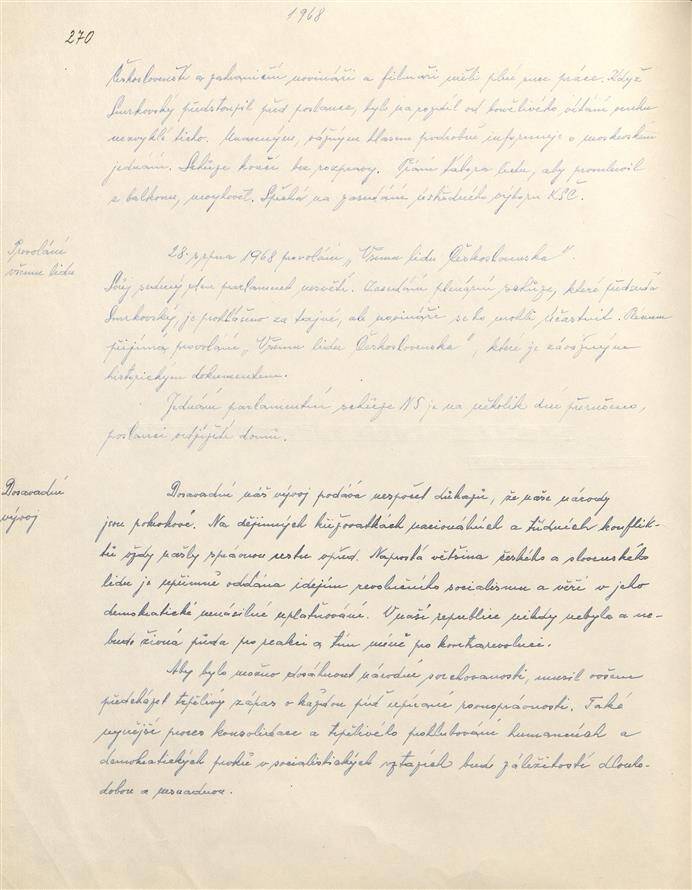 1968
270
Českoslovenští a zahraniční novináři a filmaři měli plné ruce práce. Když
Smrkovský předstoupil před poslance, bylo na rozdíl od bouřlivého vítání venku
nezvyklé ticho. Unaveným, vážným hlasem podobně informuje o moskevském
jednání. Schůze končí bez rozpravy. Přání tábora lidu, aby promluvil
z balkonu, nevyhověl. Spěchá na zasedání ústředního výboru KSČ.
Provolání
všemu lidu
28. srpna 1968 provolání „Všemu lidu Československa".
Svůj sedmý den parlament nesvětí. Zasedání plenární schůze, které předsedá
Smrkovský, je prohlášeno za tajné, ale novináři se ho mohli účastnit. Plenum
přijímá provolání „Všemu lidu Československa", které je závažným
historickým dokumentem.
Jednání parlamentní schůze NS je na několik dní přerušeno,
poslanci odjíždějí domů.
Dosavadní
vývoj
Dosavadní náš vývoj podává nespočet důkazů, že naše národy
jsou pokrokové. Na dějinných křižovatkách nacionálních a třídních konflik-
tů vždy našly správnou cestu vpřed. Naprostá většina českého a slovenského
lidu je upřímně oddána idejím revolučního socialismu a věří v jeho
demokratické nenásilné uplatňování. V naší republice nikdy nebyla a ne-
bude živná půda pro reakci a tím méně pro kontrarevoluci.
Aby bylo možno dosáhnout národní svrchovanosti, musil ovšem
předcházet trpělivý zápas o každou píď upírané rovnoprávnosti. Také
nynější proces konsolidace a trpělivého prohlubování humanních a
demokratických prvků v socialistických vztazích bude záležitostí dlouho-
dobou a nesnadnou.